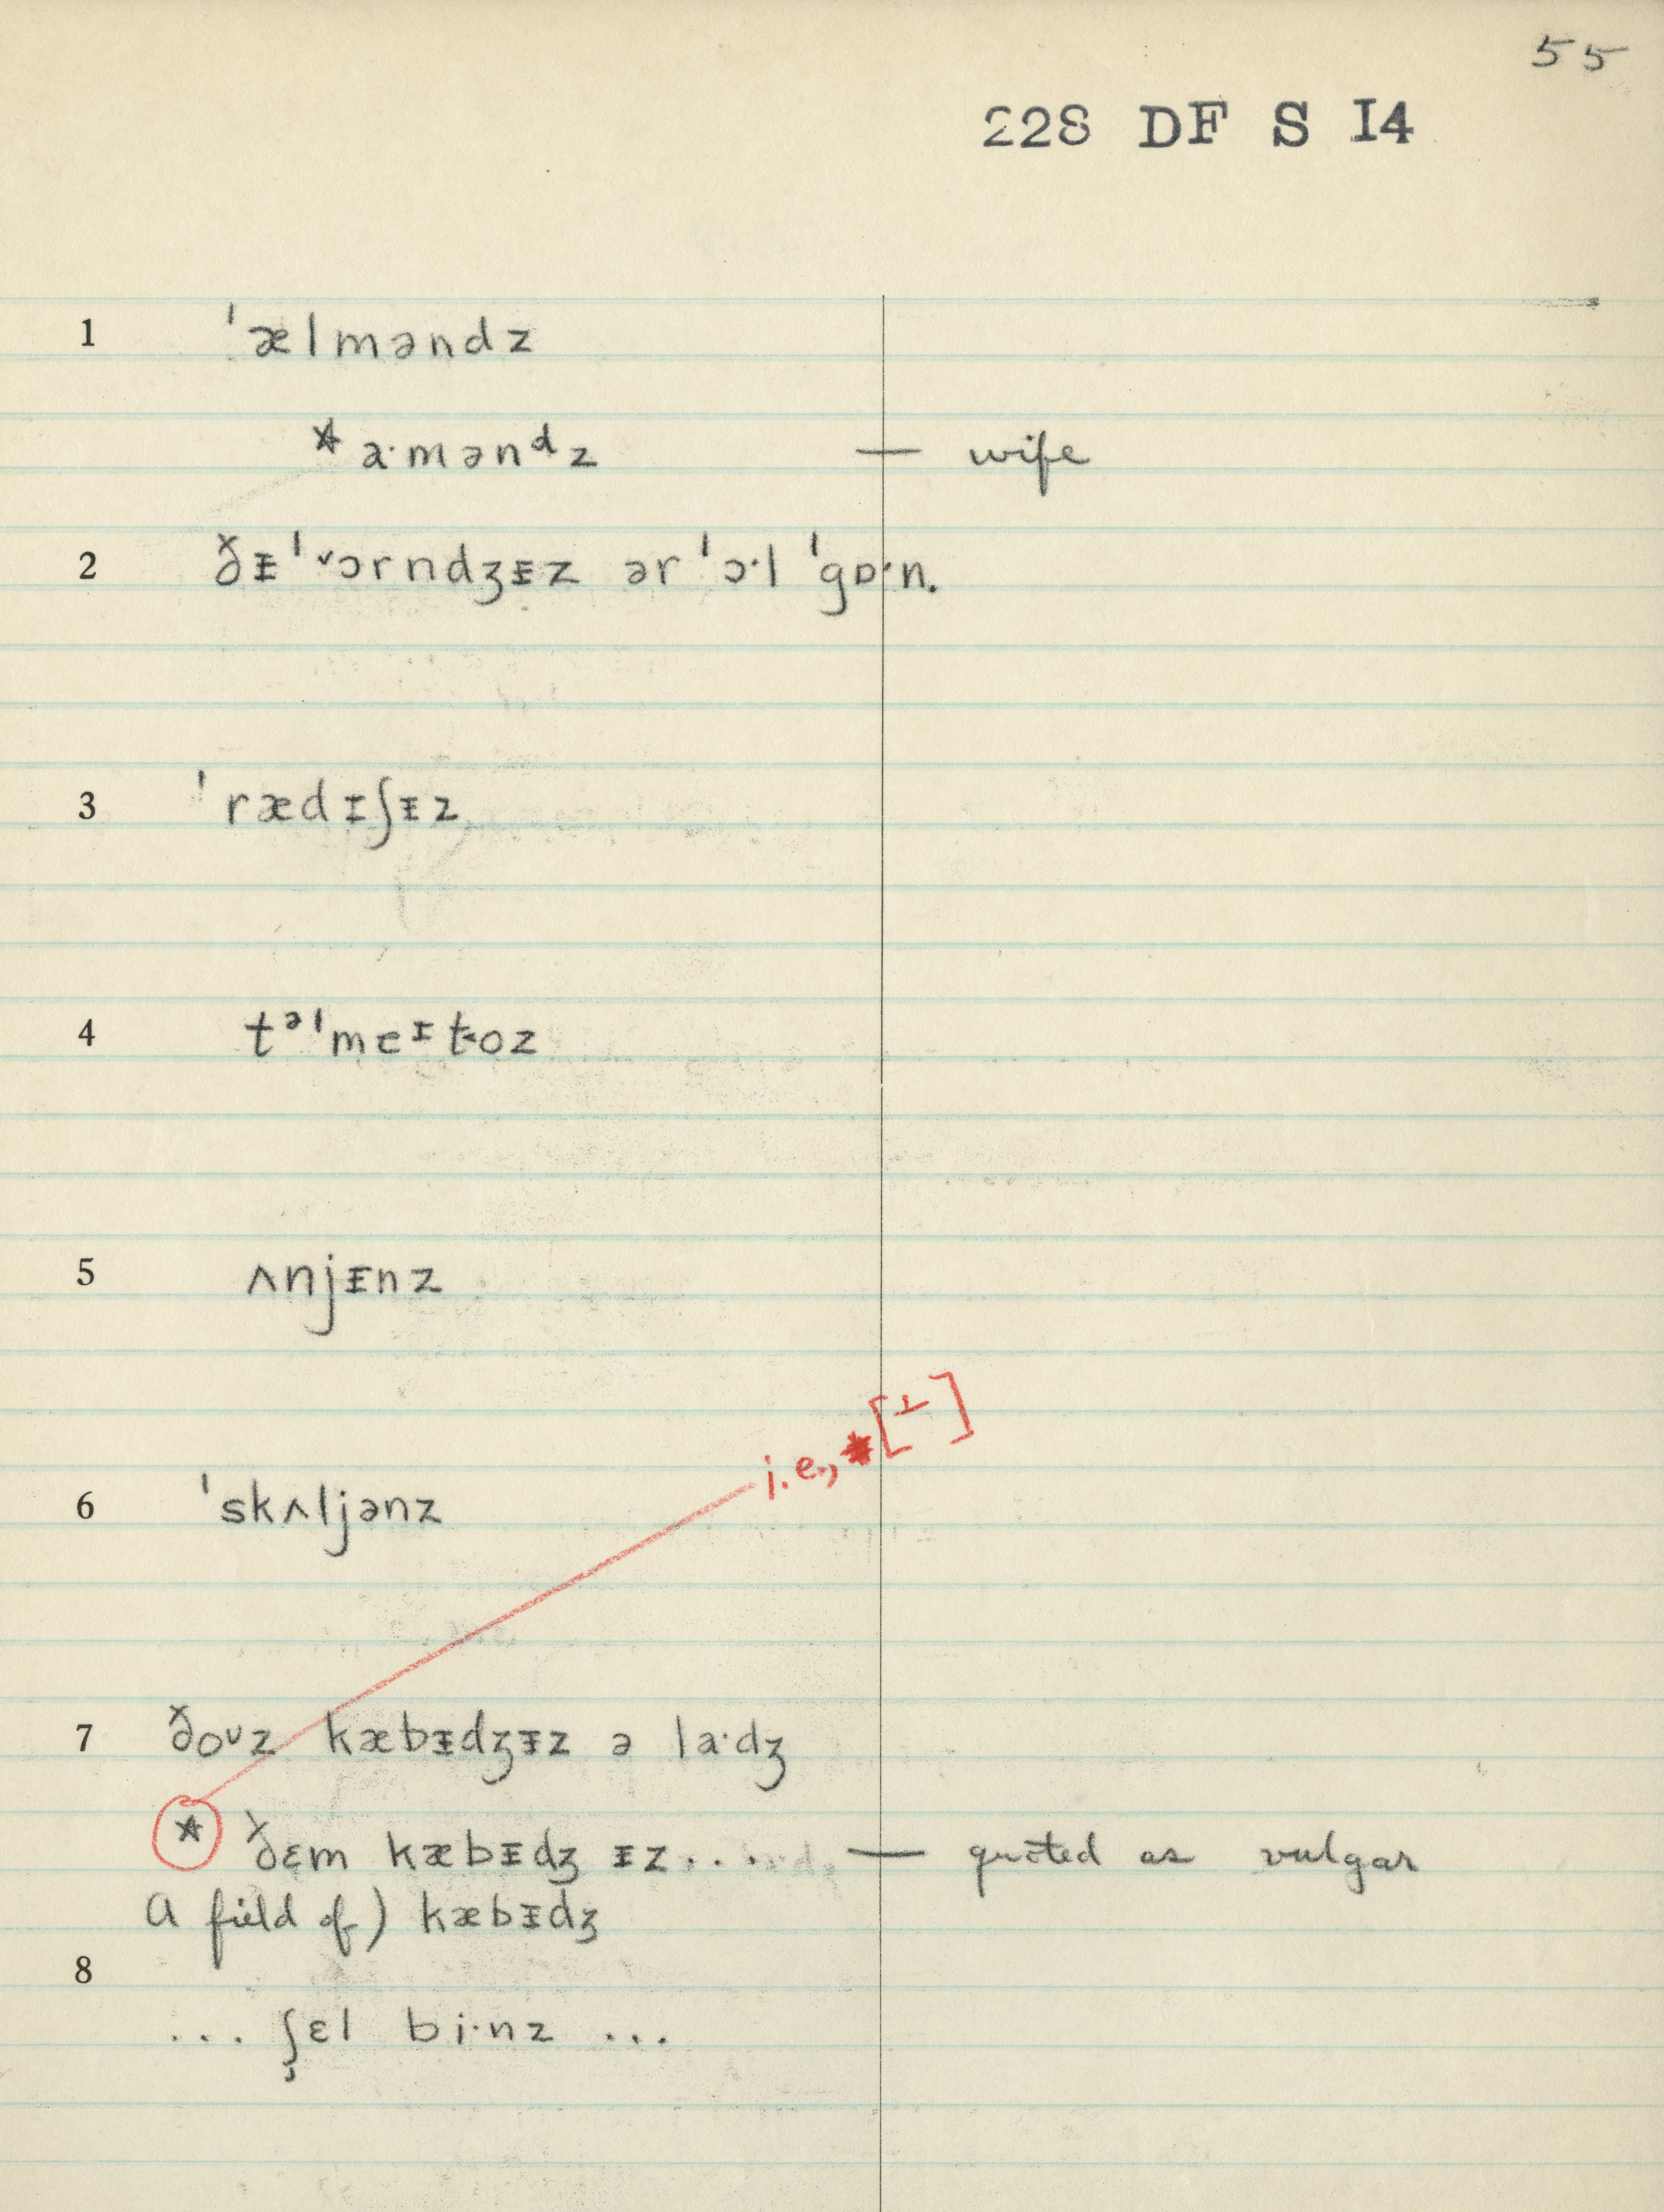 55
228 DF S I4
1 ˈælməndz
*a·mənᵈz — wife
2 ðᵻˈˇɔrndʒᵻz ər ˈɔ·l ˈgɒ·n.
3 ˈrædɪʃᵻz
4 tᵊˈmeᶦt̬oz
5 ʌnjᵻnz
6 ˈskʌljənz
i.e., *[⊥]
7 ðoᶷz kæbᵻdʒᵻz ə la·dʒ
* ðɛm kæbᵻdʒ ᵻz... — quoted as vulgar
A field of) kæbᵻdʒ
8
... ʃɛl bi·nz ...